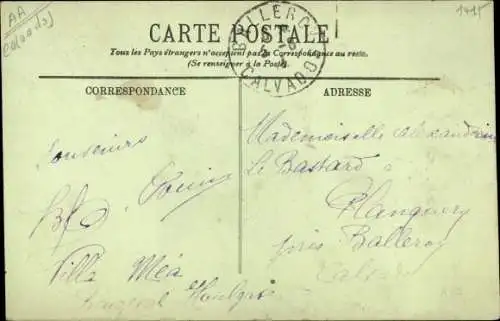 AA
Calvados
1415
CARTE POSTALE
Tous les Pays étrangers n'acceptent pas la Correspondance au recto.
(Se renseigner à la Poste).
BALLEROY
CALVADOS
CORRESPONDANCE
ADRESSE
Souvenirs
Louis
Villa Méa
Houlgate
Mademoiselle Alexandrine
Le Bastard
Planquery
près Balleroy
Calvados